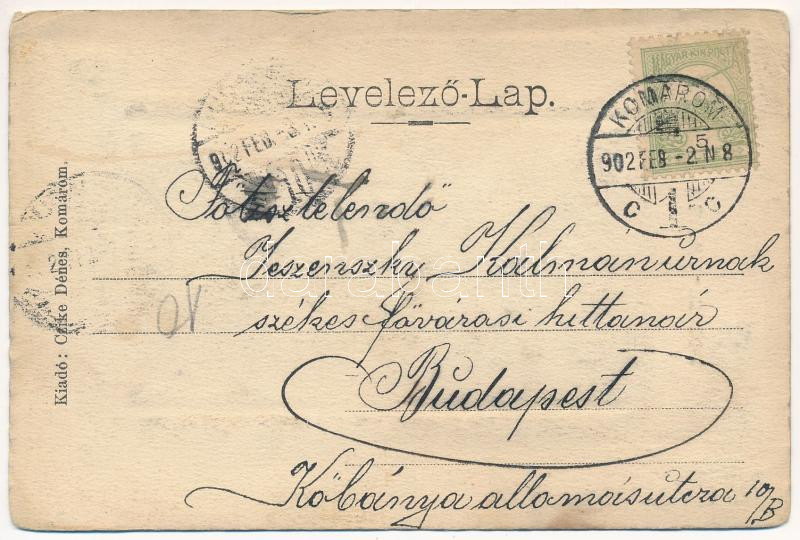 Levelező-Lap.
MAGYAR KIR. POSTA
5
KOMÁROM
902 FEB -2 N 8
C C
902 FEB -3
Főtisztelendő
Jeszenszky Kálmán úrnak
székes fővárosi hittanár
Budapest
Kőbánya allomásutcza 10/B
Kiadó: Czike Dénes, Komárom.
darabanth